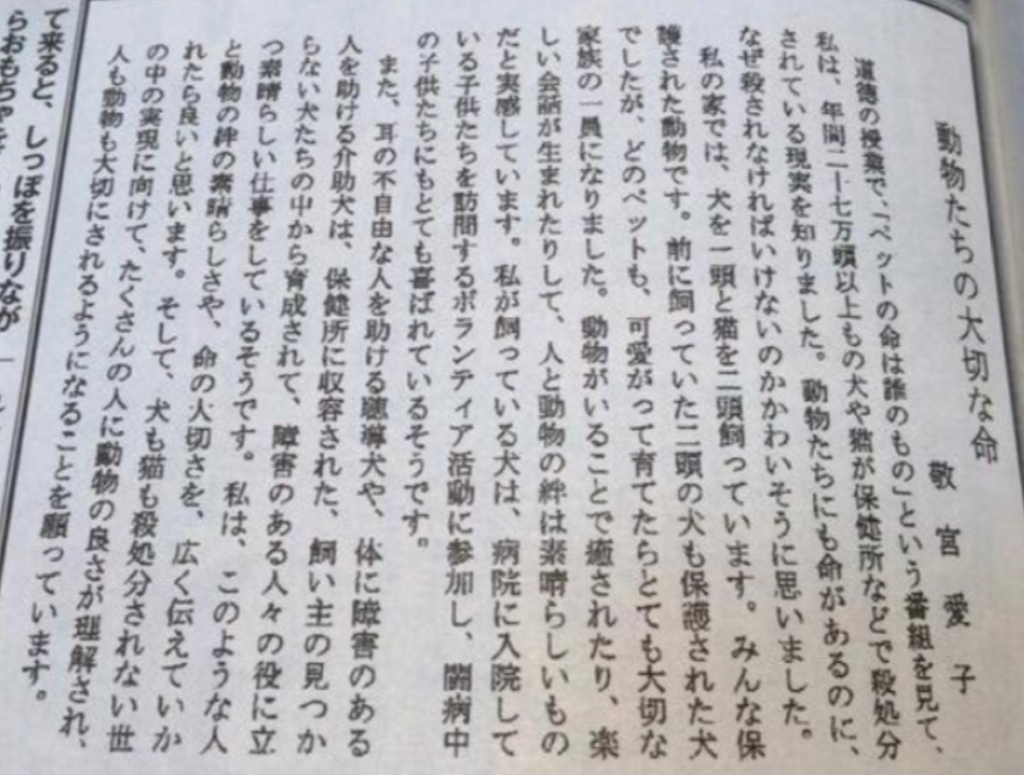 動物たちの大切な命
敬宮愛子
道徳の授業で、「ペットの命は誰のもの」という番組を見て、
私は、年間二十七万頭以上もの犬や猫が保健所などで殺処分
されている現実を知りました。動物たちにも命があるのに、
なぜ殺されなければいけないのかかわいそうに思いました。
私の家では、犬を一頭と猫を二頭飼っています。みんな保
護された動物です。前に飼っていた二頭の犬も保護された犬
でしたが、どのペットも、可愛がって育てたらとても大切な
家族の一員になりました。動物がいることで癒されたり、楽
しい会話が生まれたりして、人と動物の絆は素晴らしいもの
だと実感しています。私が飼っている犬は、病院に入院して
いる子供たちを訪問するボランティア活動に参加し、闘病中
の子供たちにもとても喜ばれているそうです。
また、耳の不自由な人を助ける聴導犬や、体に障害のある
人を助ける介助犬は、保健所に収容された、飼い主の見つか
らない犬たちの中から育成されて、障害のある人々の役に立
つ素晴らしい仕事をしているそうです。私は、このような人
と動物の絆の素晴らしさや、命の大切さを、広く伝えていか
れたら良いと思います。そして、犬も猫も殺処分されない世
の中の実現に向けて、たくさんの人に動物の良さが理解され、
人も動物も大切にされるようになることを願っています。
て来ると、しっぽを振りなが
らおもちゃを